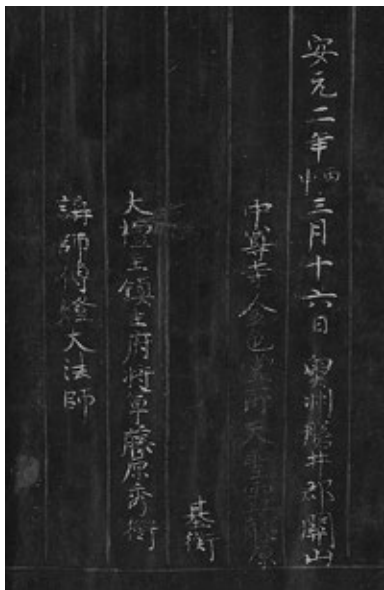 安元二年丙申三月十六日奥州磐井郡關山
中尊寺金色堂所天聖霊藤原
基衡
大檀主鎮主府将軍藤原秀衡
講師傅燈大法師